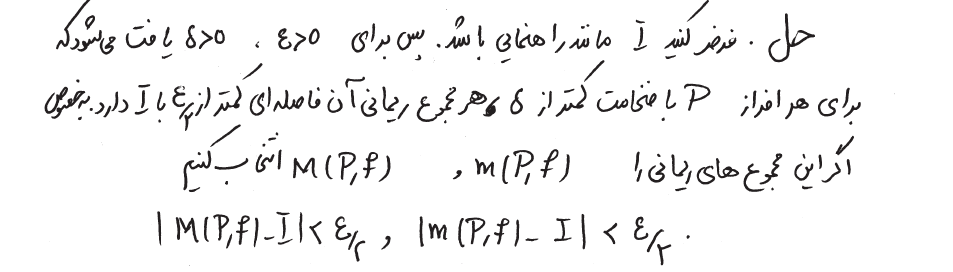 حل . فرض کنید I مانند راهنمایی باشد. پس برای ε>0 ، δ>0 یافت می‌شود که
برای هر افراز P با ضخامت کمتر از δ ، هر مجموع ریمانی آن فاصله‌ای کمتر از ε/۲ با I دارد. به خصوص
اگر این مجموع‌های ریمانی را m(P,f) ، M(P,f) انتخاب کنیم
|M(P,f)-I| < ε/۲ , |m(P,f)-I| < ε/۲ .